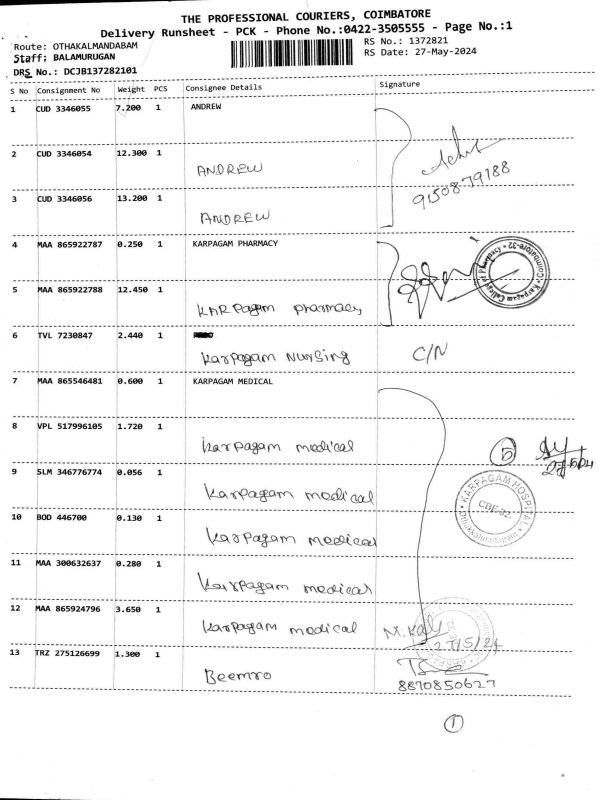 THE PROFESSIONAL COURIERS, COIMBATORE
Delivery Runsheet - PCK - Phone No.:0422-3505555 - Page No.:1
Route: OTHAKALMANDABAM RS No.: 1372821
Staff: BALAMURUGAN RS Date: 27-May-2024
DRS No.: DCJB137282101
S No Consignment No Weight PCS Consignee Details Signature
1 CUD 3346055 7.200 1 ANDREW
2 CUD 3346054 12.300 1 ANDREW
9150879188
3 CUD 3346056 13.200 1 ANDREW
4 MAA 865922787 0.250 1 KARPAGAM PHARMACY
Karpagam College of Pharmacy * Coimbatore-32 *
5 MAA 865922788 12.450 1 KARPagam pharmacy
6 TVL 7230847 2.440 1 Karpagam Nursing C/N
7 MAA 865546481 0.600 1 KARPAGAM MEDICAL
8 VPL 517996105 1.720 1 karpagam medical 5
9 SLM 346776774 0.056 1 Karpagam medical
KARPAGAM HOSPITAL
CBE-32.
10 BOD 446700 0.130 1 Karpagam medical
11 MAA 300632637 0.280 1 Karpagam medical
12 MAA 865924796 3.650 1 Karpagam medical
27/5/24
13 TRZ 275126699 1.300 1 Beemro
8870850627
1